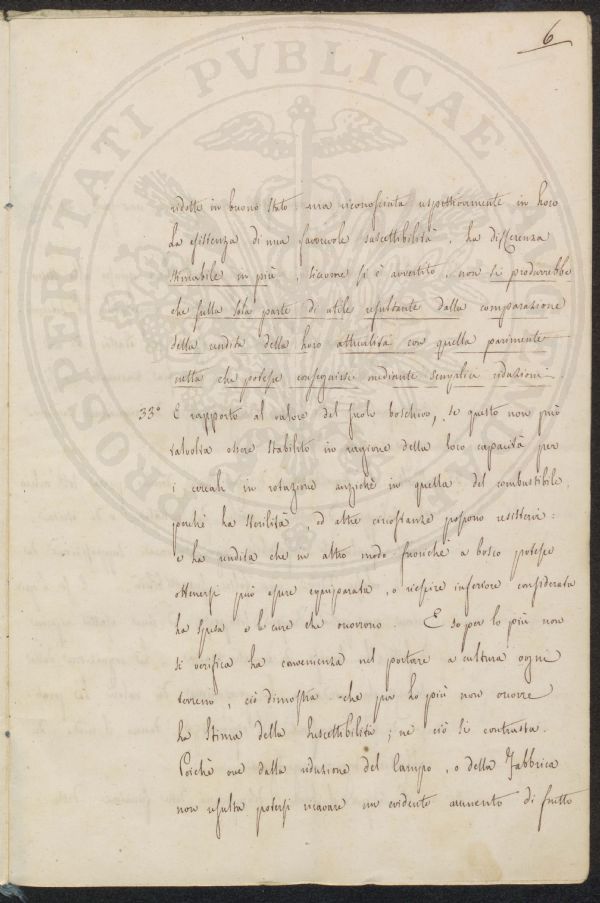 6
PROSPERITATI PVBLICAE
ridotte in buono stato: ma riconosciuta rispettivamente in loro
La esistenza di una favorevole suscettibilità, la differenza
stimabile in più, siccome si è avvertito, non si produrrebbe
che sulla sola parte di utile resultante dalla comparazione
della rendita della loro attualità con quella parimente
netta che potesse conseguirsi mediante semplici riduzioni.
33° E rapporto al valore del suolo boschivo, se questo non può
talvolta essere stabilito in ragione della loro capacità per
i cereali in rotazione anzichè in quella del combustibile,
perchè la sterilità, ed altre circostanze possono resistervi:
e la rendita che in altro modo fuorichè a bosco potesse
ottenersi può essere equiparata, o riescire inferiore considerata
la spesa e le cure che occorrono. E so per lo più non
si verifica la convenienza nel portare a cultura ogni
terreno, ciò dimostra che per lo più non occorre
la stima della suscettibilità; nè ciò si contrasta.
Poichè ove dalla riduzione del Campo, o della Fabbrica
non resulta potersi ricavare un evidente aumento di frutto